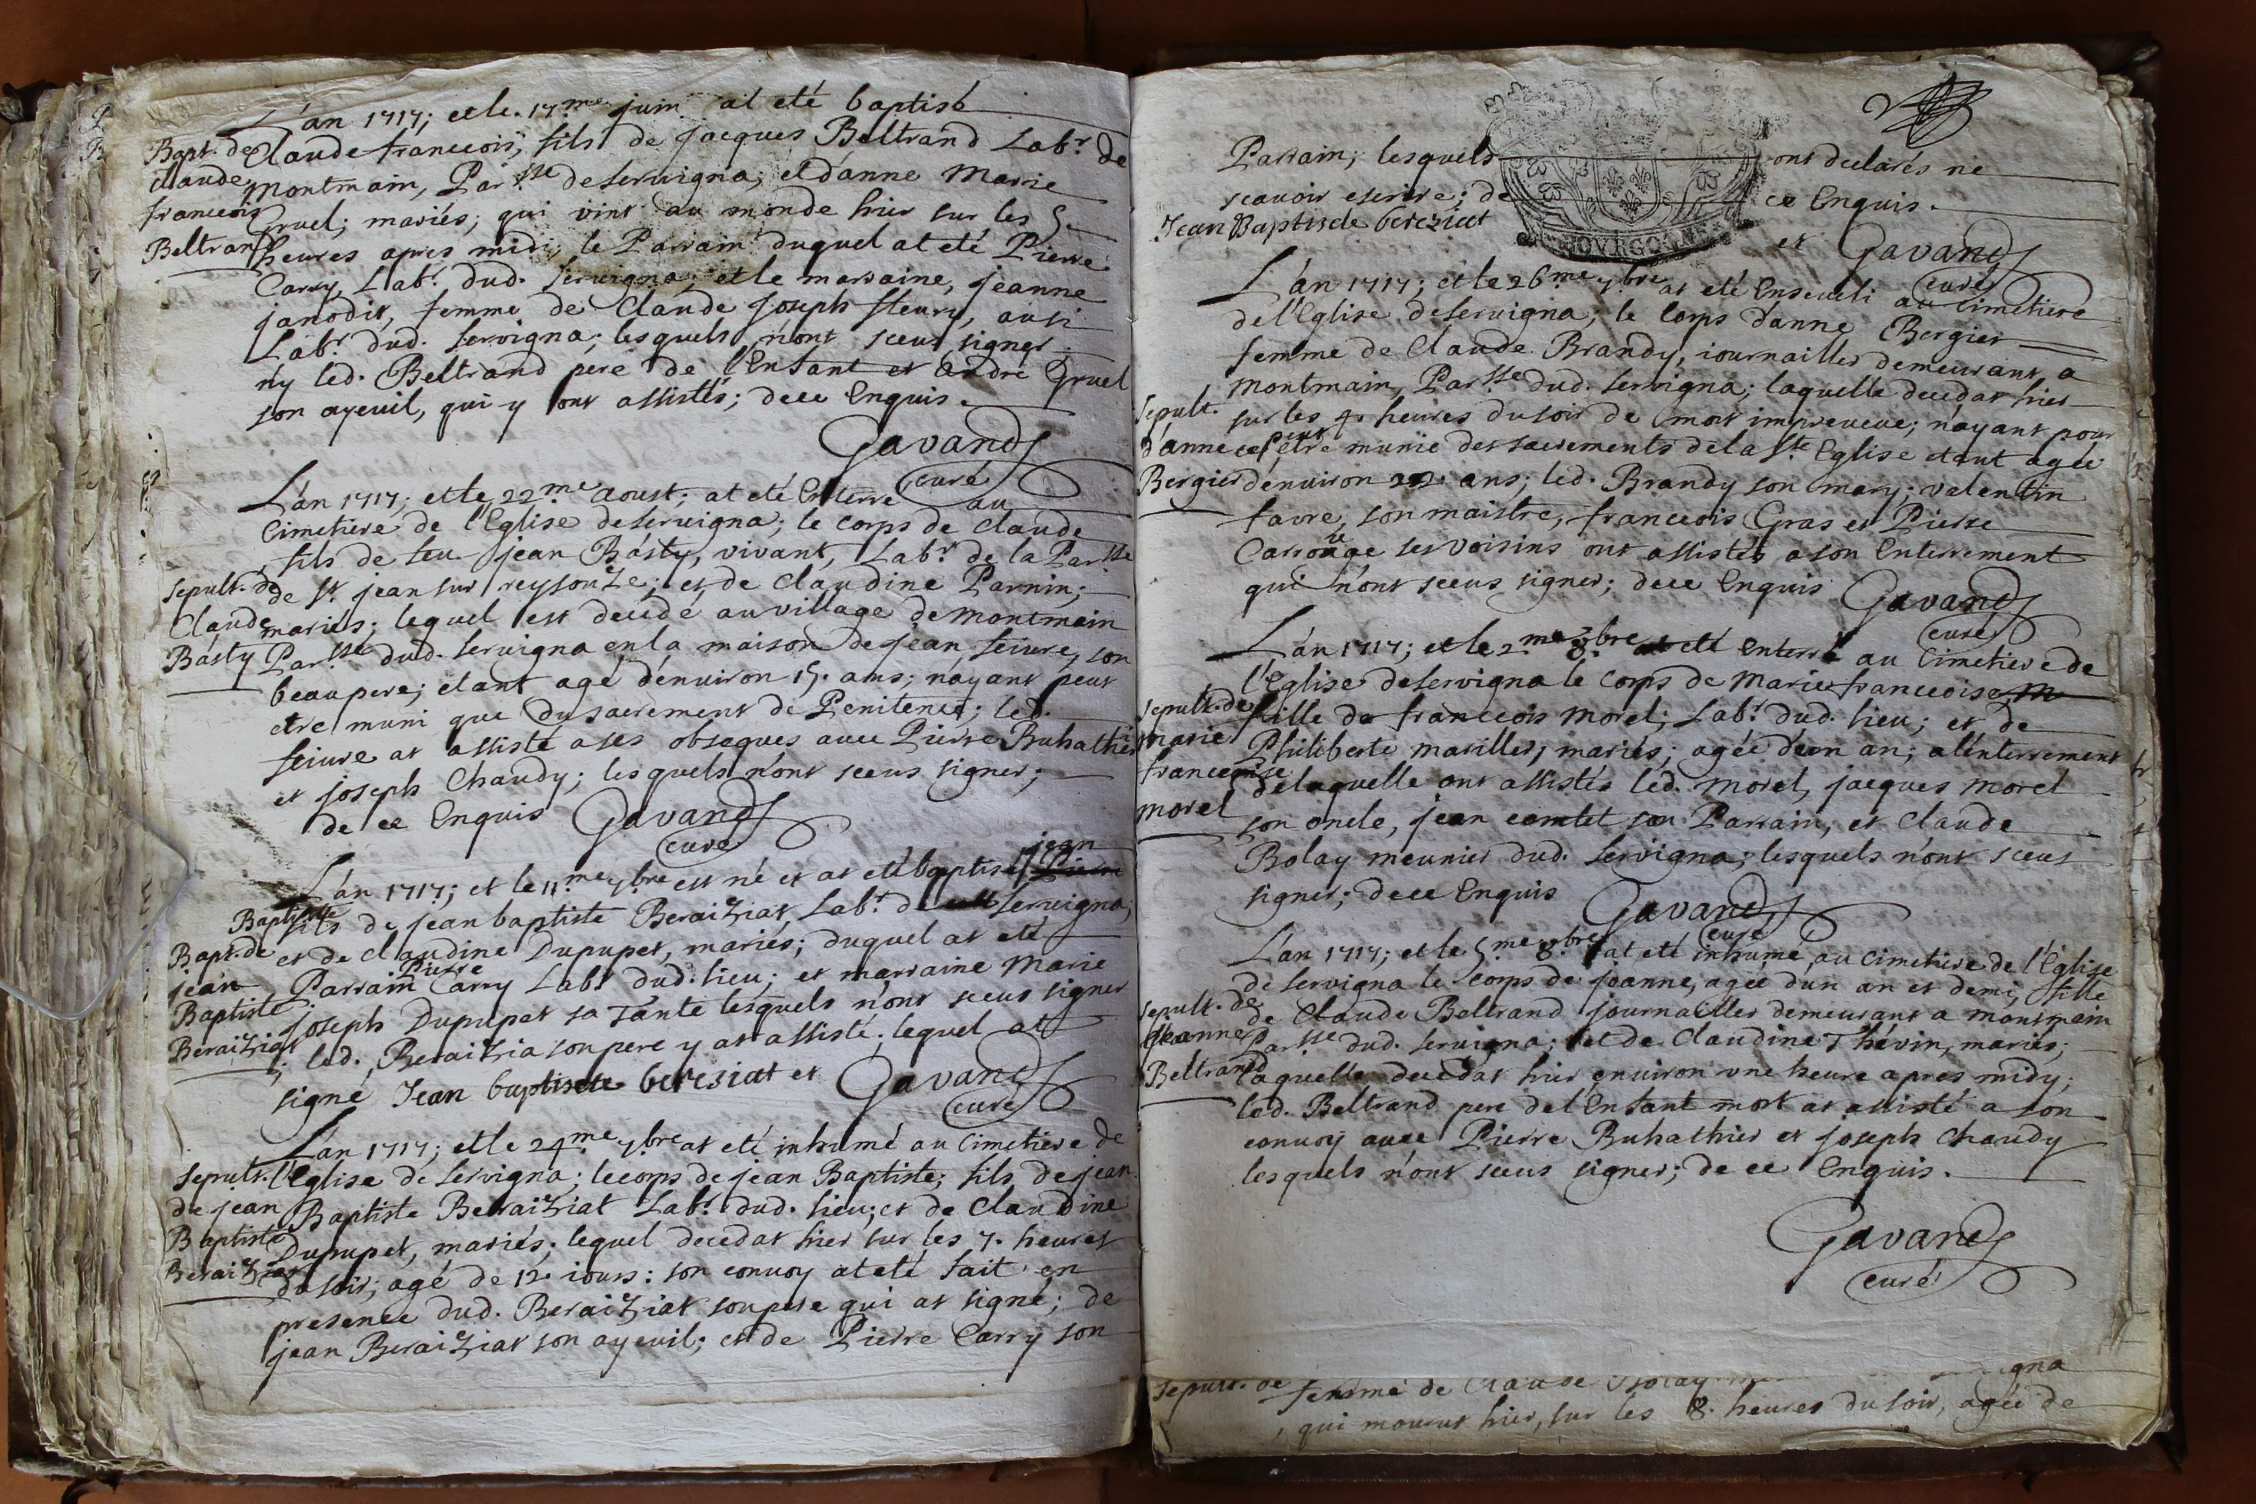 L'an 1717; et le 17.me juin at eté baptisé
Bapt. de
Claude
francois
Beltrand
Claude francois, fils de jacques Beltrand Labr. de
montmain, Par.sse de servigna; et d'anne Marie
Gruel; mariés; qui vint au monde hier sur les 5.
heures apres midi; le Parrain duquel at eté Pierre
Carry, Labr. dud. servigna, et le marraine, jeanne
janodit, femme de Claude joseph fleury, aussi
Labr. dud. servigna; lesquels n'ont sceus signer
n'y led. Beltrand pere de l'Enfant et André Gruel
son ayeuil, qui y ont assistés; de ce Enquis.
Gavand
curé
L'an 1717; et le 22.me aoust; at eté Enterré au
Cimetiere de l'Eglise de servigna; le corps de claude
fils de feu jean Básty, vivant, Labr. de la Par.sse
sepult. de
Claude
Básty
de st. jean sur reysouze; et de claudine Parnin;
mariés; lequel est decidé au village de montmain
Par.sse dud. servigna en la maison de jean feivre, son
beaupere; etant agé d'enuiron 15. ans; n'áyant peut
etre muni que du sacrement de Penitence; led.
feivre at assisté a ses obseques avec Pierre Buhathier
et joseph Chaudy; lesquels n'ont sceus signer;
de ce Enquis Gavand
curé
jean
L'an 1717; et le 11.me 7.bre est né et at eté baptisé
Baptiste
fils de jean baptiste Beraiziat, Labr. de servigna;
Bapt. de
jean
Baptiste
Beraiziat
et de Claudine Dupupet, mariés; duquel at eté
Pierre
Parrain Carry Labr. dud. lieu; et marraine Marie
joseph Dupupet sa Tante lesquels n'ont sceus signer
; led. Beraizia son pere y at assisté. lequel at
signé Jean baptiste beresiat et Gavand
curé
L'an 1717; et le 24.me 7.bre at eté inhumé au Cimetiere de
sepult.
de jean
Baptiste
Beraiziat
l'Eglise de servigna; le corps de jean Baptiste; fils de jean
Baptiste Beraiziat Labr. dud. lieu; et de Claudine
Dupupet, mariés; lequel decedat hier sur les 7. heures
du soir, agé de 12. iours: son convoy at eté fait en
presence dud. Beraiziat son pere qui at signé; de
jean Beraiziat son ayeuil; et de Pierre Carry son
Parrain; lesquels ont declarés ne
scavoir escrire; de ce Enquis.
BOURGOGNE
Jean Baptiste bereziat et Gavand
curé
L'an 1717; et le 26.me 7.bre at eté Enseveli au Cimetiere
de l'Eglise de servigna; le Corps d'anne Bergier
femme de Claude Brandy, iournallier demeurant a
montmain, Par.sse dud. servigna; laquelle decedat hier
sepult.
d'anne
Bergier
sur les 4. heures du soir de mort impreveue; n'áyant pour
ce peut être munie des sacrements de la Ste. Eglise etant agée
d'enuiron ans; led. Brandy son mary; valentin
favre, son maistre, francois Gras et Pierre
Carrouge ses voisins ont assistés a son Enterrement
qui n'ont sceus signer; de ce Enquis Gavand
curé
L'an 1717; et le 2.me 8.bre at eté Enterré au Cimetiere de
l'Eglise de servigna le Corps de Marie francoise
sepult. de
marie
francoise
morel
fille de francois morel; Labr. dud. lieu; et de
Philiberte marillier; mariés; agée d'un an; a l'enterrement
de laquelle ont assistés led. morel, jacques morel
son oncle, jean comtet son Parrain, et Claude
Bolay meunier dud. servigna; lesquels n'ont sceus
signer; de ce Enquis Gavand
curé
L'an 1717; et le 5.me 8.bre at eté inhumé au cimetiere de l'Eglise
de servigna le Corps de joanne, agée d'un an et demi, fille
sepult. de
jeanne
Beltrand
de Claude Beltrand journallier demeurant a montmain
Par.sse dud. servigna; et de Claudine Thévin, mariés;
laquelle decedat hier enuiron une heure apres midy;
led. Beltrand pere de l'Enfant mort at assisté a son
convoy avec Pierre Buhathier et joseph Chaudy
lesquels n'ont sceus signer; de ce Enquis.
Gavand
curé
sepult. de femme de Claude Bolay gna
, qui mourut hier, sur les 8. heures du soir, agée de